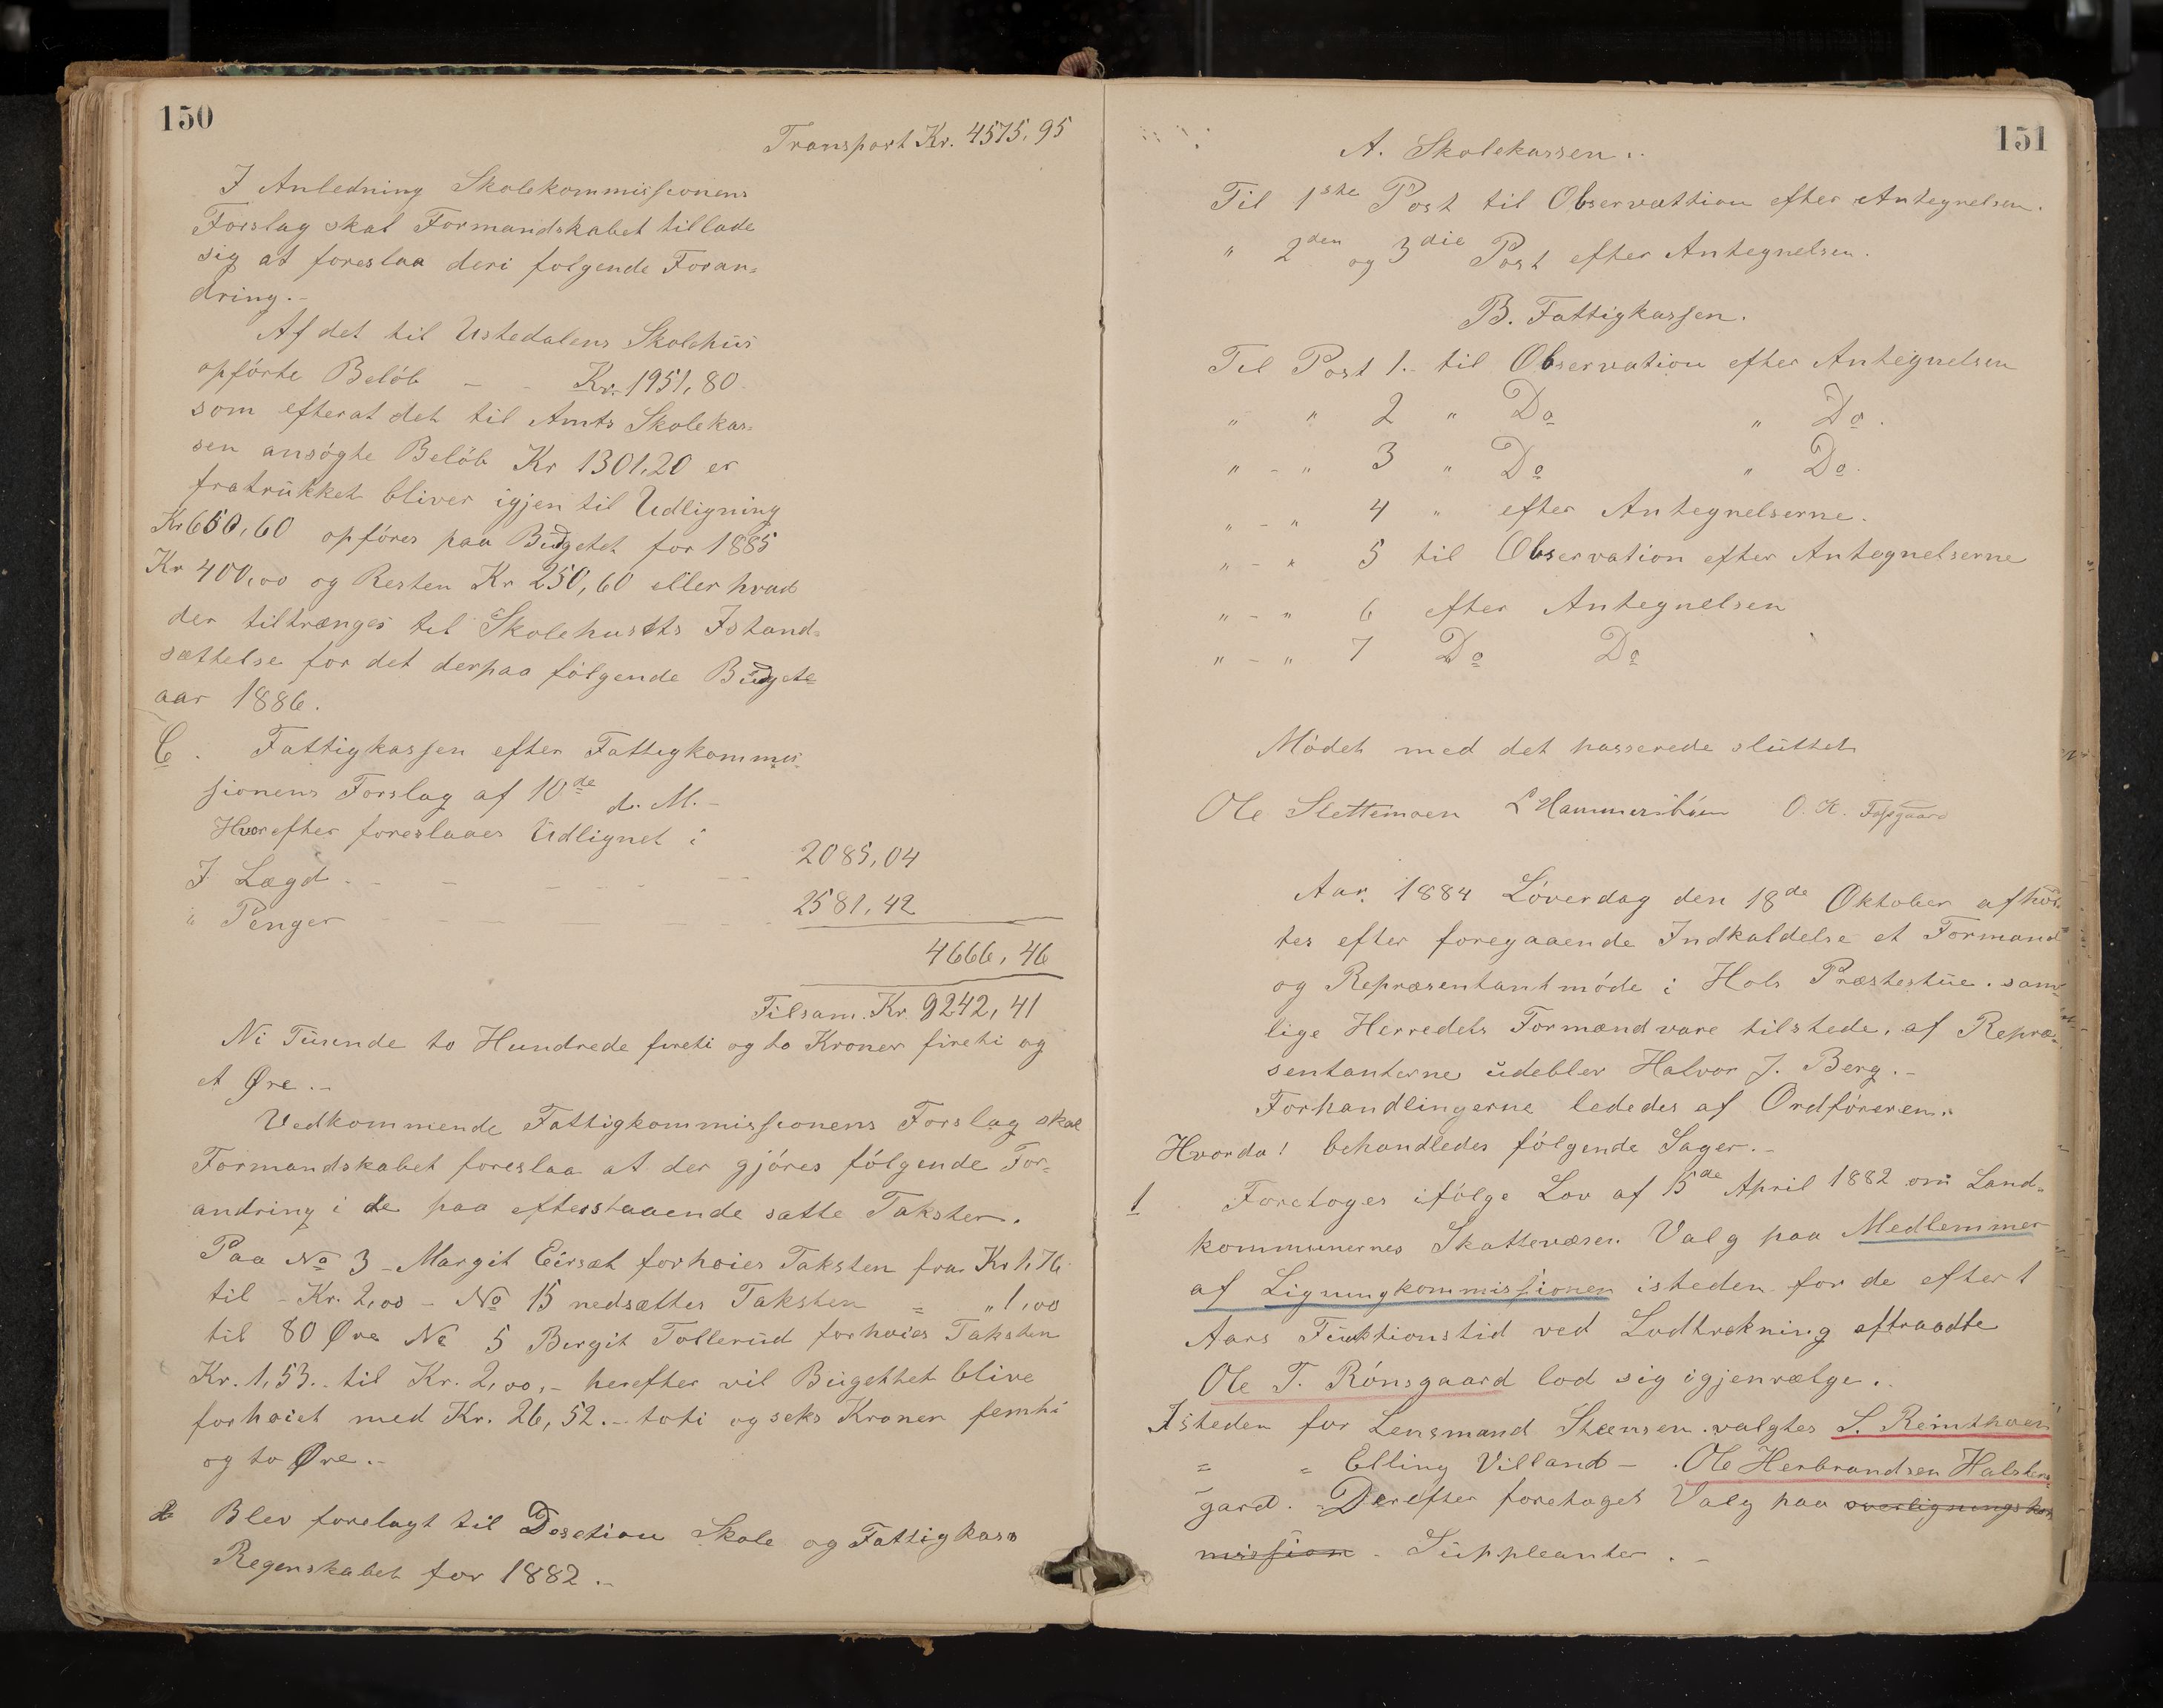 150
Transport Kr. 4575,95
I Anledning Skolekommissionens
Forslag skal Formandskabet tillade
sig at foreslaa deri følgende Foran-
dring.-
Af det til Ustedalens Skolehüs
opførte Beløb - - Kr. 1951,80.
som efterat det til Amts Skolekas-
sen ansøgte Beløb Kr 1301,20 er
fratrükket bliver igjen til Udligning
Kr 650,60 opføres paa Büdgetet for 1885
Kr 400,00 og Resten Kr 250,60 eller hvad
der tiltrænges til Skolehusets Istand-
sættelse for det derpaa følgende Büdgete-
aar 1886.
C. Fattigkassen efter Fattigkommis-
sionens Forslag af 10de d. M.-
Hvorefter foreslaaes Üdlignet i
I Lægd - - - - - 2085,04
i Penger - - - - 2581,42
4666,46
Tilsam. Kr. 9242,41
Ni Tüsnde to Hundrede fireti og to Kroner fireti og
et Øre.-
Vedkommende Fattigkommissionens Forslag skal
Formandskabet foreslaa at der gjøres følgende For-
andring i de paa efterstaaende satte Takster.
Paa No 3 - Margit Eirsæt forhøies Taksten fra Kr 1,76
til - Kr. 2,00 - No 15 nedsættes Taksten = " 1,00
til 80 Øre No 5 Birgit Tollerüd forhøies Taksten
Kr. 1,53.- til Kr. 2,00,- herefter vil Bügettet blive
forhøiet med Kr. 26,52.- toti og seks Kroner femti
og to Øre.-
Blev forelagt til Desetion Skole og Fattigkass
Regenskabet for 1882.-
151
A. Skolekassen..
Til 1ste Post til Observattion efter Antegnelsen.
" 2den og 3die Post efter Antegnelsen.
B. Fattigkassen.
Til Post 1.- til Observation efter Antegnelsen
" " 2 " Do " Do.
" - " 3 " Do " Do.
" - " 4 " efter Antegnelserne.
" - " 5 til Observation efter Antegnelserne
" - " 6 efter Antegnelsen
" - " 7 Do Do
Mødet med det passerede slüttet
Ole Slettemoen L Hammersbøen O. K. Fossgaard
Aar 1884 Løverdag den 18de Oktober afhol-
tes efter foregaaende Indkaldelse et Formand
og Repræsentantmøde i Hols Præstestüe. sam-
lige Herredets Formænd vare tilstede, af Repræ-
sentanterne üdeblev Halvor J. Berg.-
Forhandlingerne lededes af Ordføreren.
Hvorda! behandledes følgende Sager.-
1 Foretoges ifølge Lov af 15de April 1882 om Land-
kommunernes Skattevæsen Valg paa Medlemmer
af Ligningkommissionen isteden for de efter 1
Aars Fünktionstid ved Lodtrekning eftraadte
Ole T. Rønsgaard lod sig igjenvælge.
Isteden for Lensmand Stensen valgtes S. Reinthoen
= = Elling Villand - Ole Herbrandsen Halsten-
gard. Derefter foretoges Valg paa overligningskom
mission - Süppleanter.-